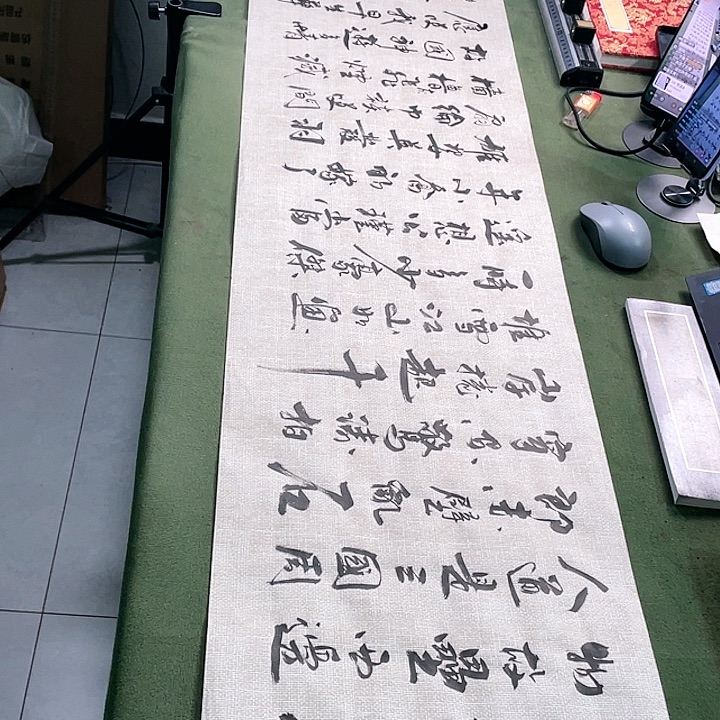 物故壘西邊
人道是三國周
郎赤壁亂石
穿空驚濤拍
岸捲起千
堆雪江山如畫
一時多少豪傑
遙想公瑾當
年小喬初嫁了
雄姿英發羽
扇綸巾談笑間
檣櫓灰飛煙滅
故國神遊多情
應笑我早生華